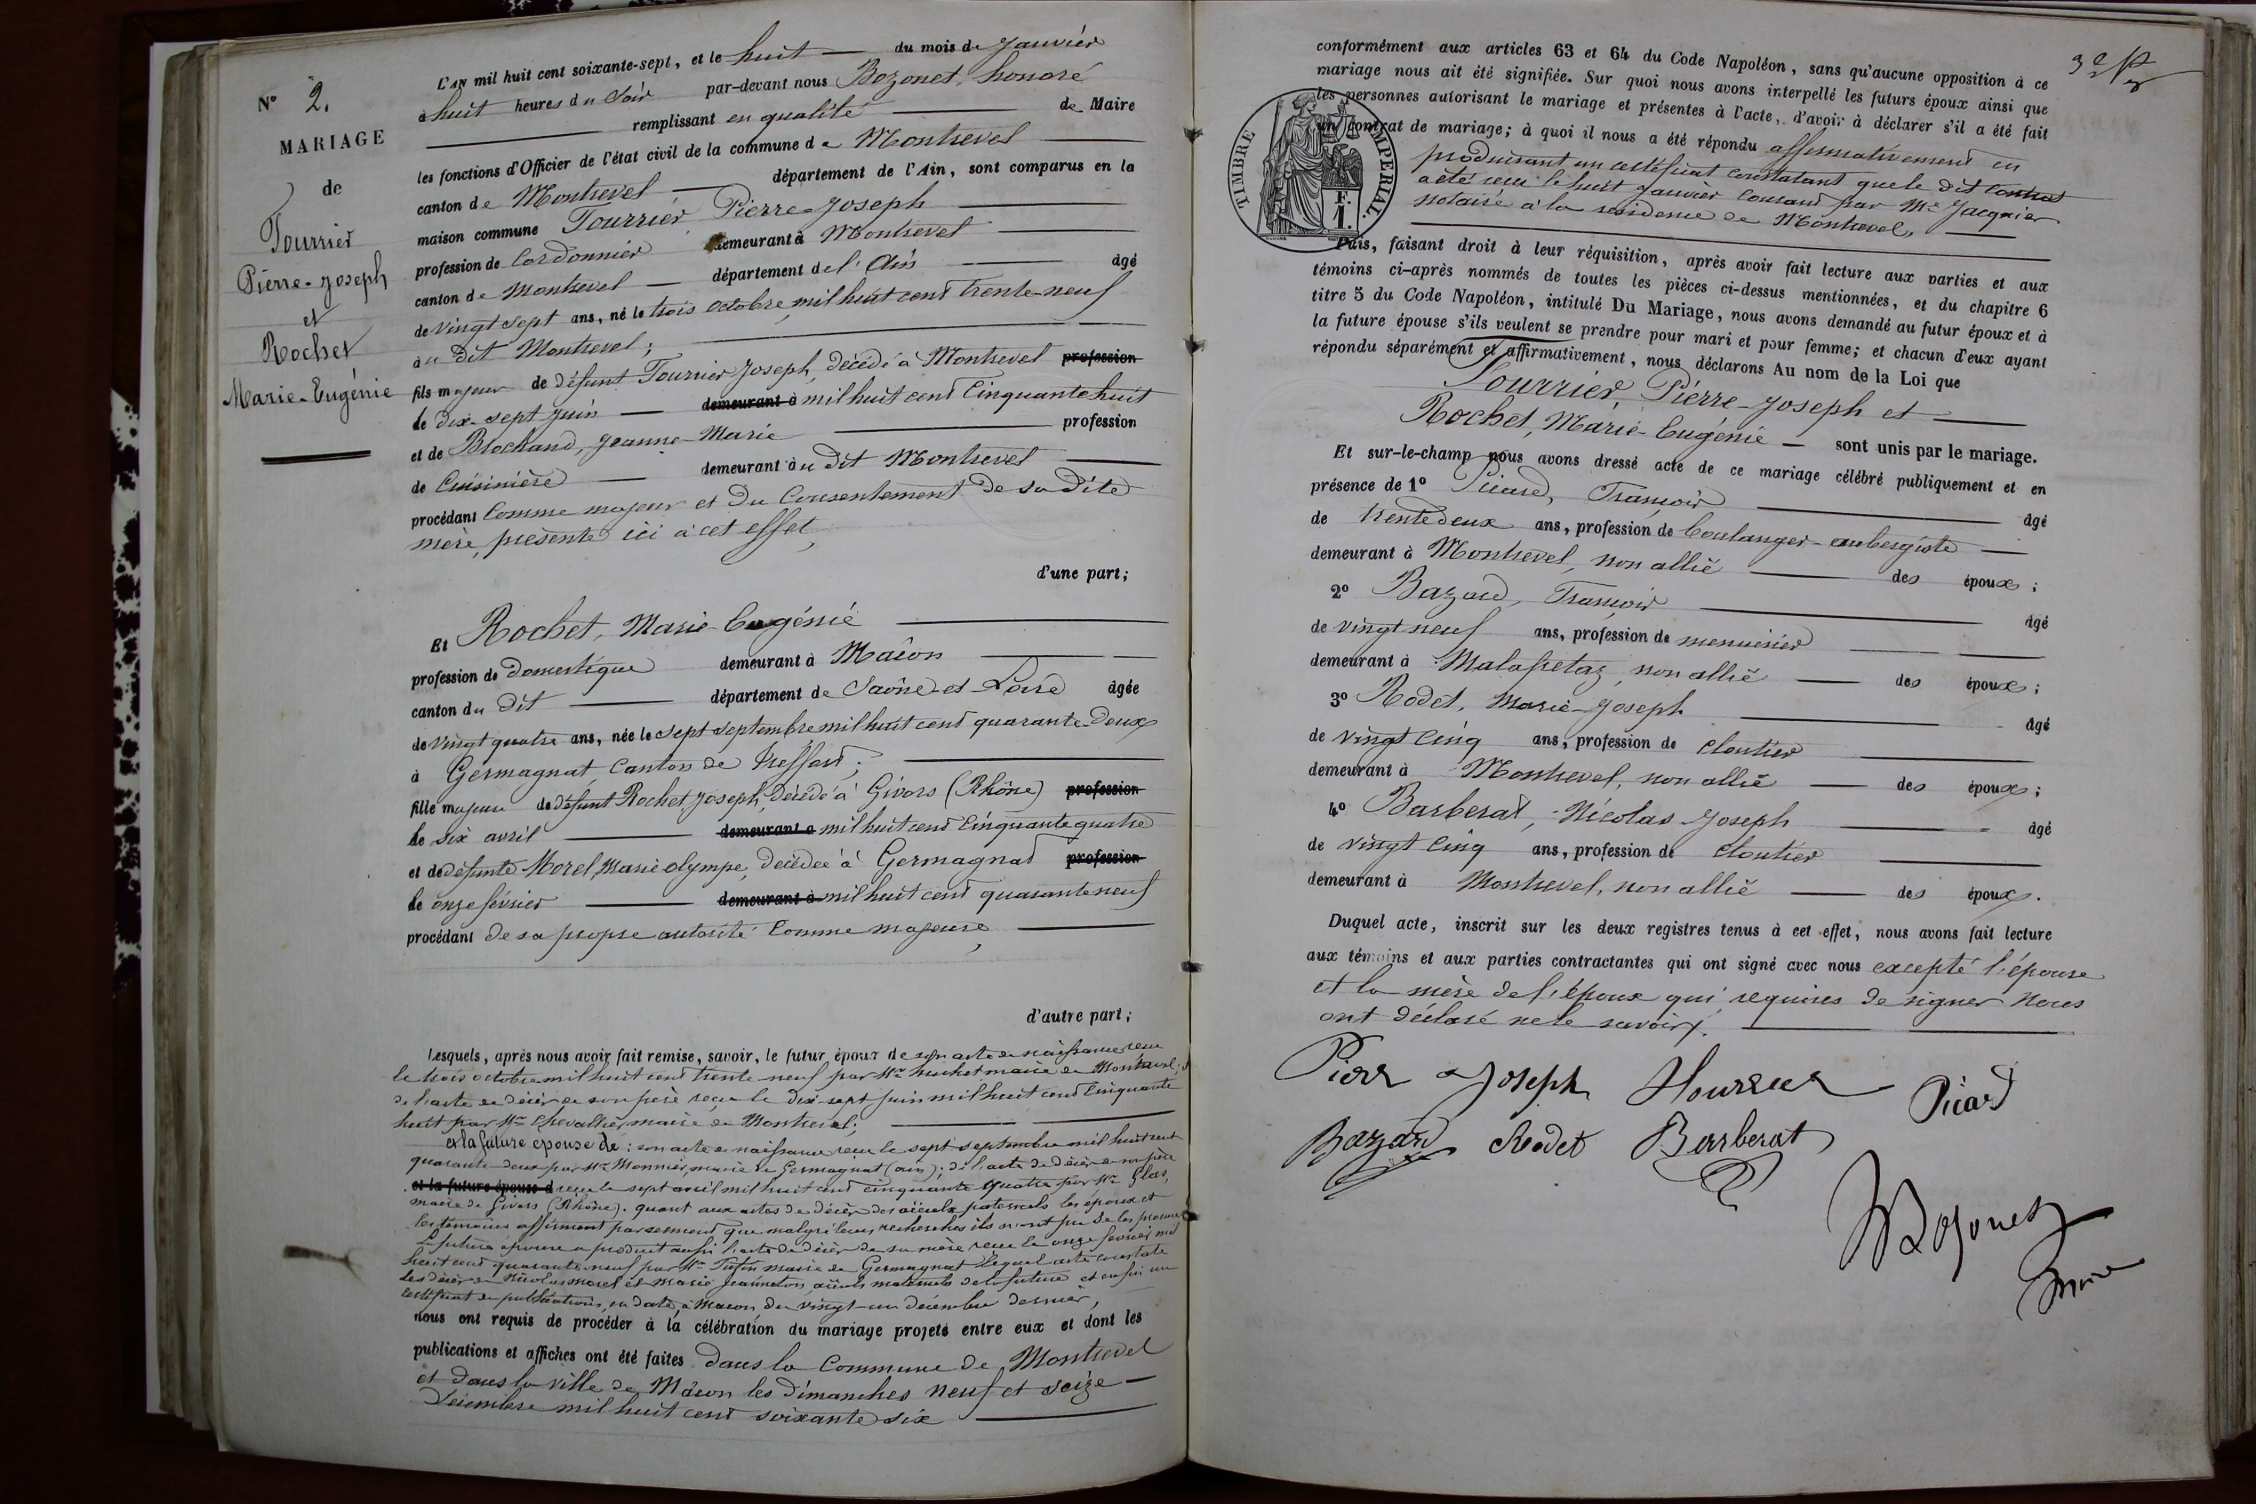 N° 2.
MARIAGE
de
Tourrier
Pierre-Joseph
et
Rochet
Marie-Eugénie
L'AN mil huit cent soixante-sept, et le huit du mois de Janvier
à huit heures du Soir par-devant nous Bozonet, honoré
remplissant en qualité de Maire
les fonctions d'Officier de l'état civil de la commune de Montrevel
canton de Montrevel département de l'Ain, sont comparus en la
maison commune Tourrier Pierre-Joseph
profession de Cordonnier demeurant à Montrevel
canton de Montrevel département de l'Ain âgé
de vingt sept ans, né le trois octobre mil huit cent trente-neuf
au dit Montrevel;
fils majeur de défunt Tourrier Joseph, décédé à Montrevel profession
le dix-sept juin demeurant à mil huit cent Cinquante huit
et de Brochand, Jeanne-Marie profession
de Cuisinière demeurant au dit Montrevel
procédant Comme majeur et du Consentement de sa dite
mère, présente ici à cet effet,
d'une part;
Et Rochet, Marie-Eugénie
profession de domestique demeurant à Macon
canton du dit département de Saône-et-Loire âgée
de vingt quatre ans, née le sept septembre mil huit cent quarante-deux
à Germagnat, Canton de Treffort;
fille majeure de défunt Rochet Joseph, décédé à Givors (Rhône) profession
le six avril demeurant à mil huit cent Cinquante quatre
et de défunte Morel, Marie olympe, décédée à Germagnat profession
le onze février demeurant à mil huit cent quarante neuf
procédant de sa propre autorité Comme majeure,
d'autre part;
Lesquels, après nous avoir fait remise, savoir, le futur époux de son acte de naissance reçu
le trois octobre mil huit cent trente neuf par Mr huchet maire de Montrevel;
de l'acte de décès de son père reçu le dix-sept juin mil huit cent Cinquante
huit par Mr Chevallier maire de Montrevel;
et la future épouse de: son acte de naissance reçu le sept septembre mil huit cent
quarante-deux par Mr Monnier, maire de Germagnat (ain); de l'acte de décès de son père
et la future épouse d reçu le sept avril mil huit cent cinquante quatre par Mr Glas,
maire de Givors (Rhône). quant aux actes de décès des aïeuls paternels les époux et
les témoins affirment par serment que malgré leurs recherches ils n'ont pu se les procurer
La future épouse a produit aussi l'acte de décès de sa mère reçu le onze février mil
huit cent quarante-neuf par Mr maire de Germagnat lequel acte constate
les décès de Nicolas morel et Marie Jeanneton, aïeuls maternels de la future et enfin un
certificat de publications, en date à Macon du vingt-un décembre dernier,
nous ont requis de procéder à la célébration du mariage projeté entre eux et dont les
publications et affiches ont été faites dans la Commune de Montrevel
et dans la ville de Mâcon les dimanches neuf et seize
Décembre mil huit cent soixante six
conformément aux articles 63 et 64 du Code Napoléon, sans qu'aucune opposition à ce
mariage nous ait été signifiée. Sur quoi nous avons interpellé les futurs époux ainsi que
les personnes autorisant le mariage et présentes à l'acte, d'avoir à déclarer s'il a été fait
un contrat de mariage; à quoi il nous a été répondu affirmativement en
produisant un certificat constatant que le dit Contrat
a été reçu le huit Janvier Courant par Me Jacquier
notaire à la résidence de Montrevel,
TIMBRE IMPÉRIAL.
F.
1.
Puis, faisant droit à leur réquisition, après avoir fait lecture aux parties et aux
témoins ci-après nommés de toutes les pièces ci-dessus mentionnées, et du chapitre 6
titre 5 du Code Napoléon, intitulé Du Mariage, nous avons demandé au futur époux et à
la future épouse s'ils veulent se prendre pour mari et pour femme; et chacun d'eux ayant
répondu séparément et affirmativement, nous déclarons Au nom de la Loi que
Tourrier, Pierre-Joseph et
Rochet, Marie-Eugénie sont unis par le mariage.
Et sur-le-champ nous avons dressé acte de ce mariage célébré publiquement et en
présence de 1° Picard, François âgé
de trente deux ans, profession de boulanger-aubergiste
demeurant à Montrevel, non allié des époux;
2° Bazard, François âgé
de vingt neuf ans, profession de menuisier
demeurant à Malafretaz, non allié des époux;
3° Rodet, Marie-Joseph âgé
de vingt cinq ans, profession de cloutier
demeurant à Montrevel, non allié des époux;
4° Barberat, Nicolas-Joseph âgé
de vingt cinq ans, profession de cloutier
demeurant à Montrevel, non allié des époux.
Duquel acte, inscrit sur les deux registres tenus à cet effet, nous avons fait lecture
aux témoins et aux parties contractantes qui ont signé avec nous excepté l'épouse
et la mère de l'époux qui requises de signer nous
ont déclaré ne le savoir.
Pierr Joseph Tourrier Picard
Bazard Rodet Barberat
Bozonet
Maire